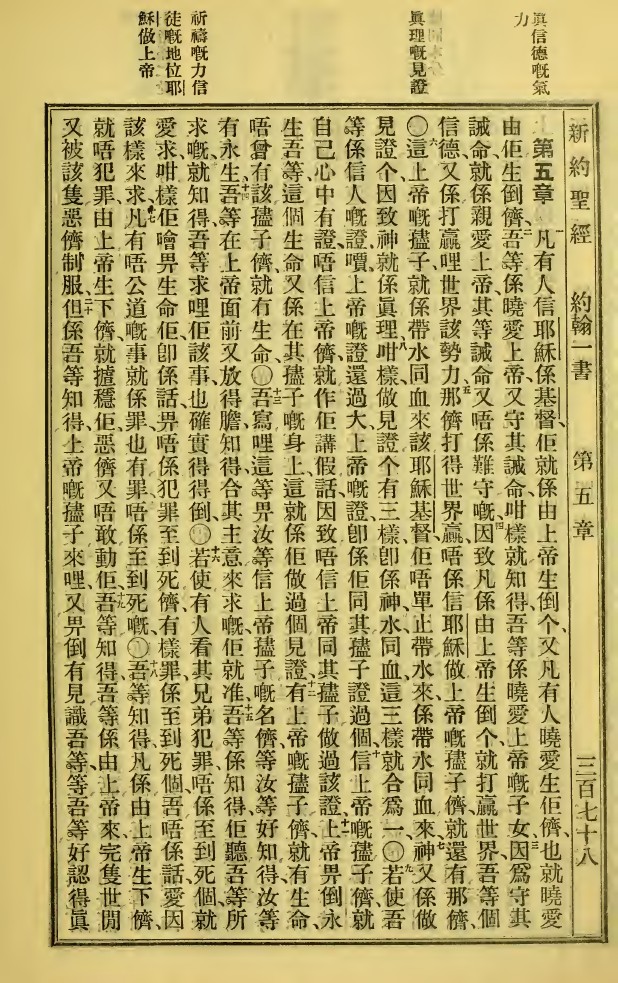 眞信德嘅氣
力
眞理嘅見證
祈禱嘅力信
徒嘅地位耶
穌做上帝
新約聖經 約翰一書 第五章 三百七十八
第五章 一凡有人信耶穌係基督佢就係由上帝生倒个、又凡有人曉愛生佢儕、也就曉愛
由佢生倒儕、二吾等係曉愛上帝、又守其誡命、咁樣就知得、吾等係曉愛上帝嘅子女、三因爲守其
誡命、就係親愛上帝、其等誡命、又唔係難守嘅、四因致凡係由上帝生倒个、就打贏世界、吾等個
信德、又係打贏哩世界該勢力、五那儕打得世界贏、唔係信耶穌做上帝嘅孻子儕、就還有那儕、
〇六這上帝嘅孻子、就係帶水同血來該耶穌基督、佢唔單止帶水來、係帶水同血來、七神又係做
見證个、因致神就係眞理、八咁樣做見證个有三樣、卽係神水同血、這三樣就合爲一、〇九若使吾
等係信人嘅證、嘪上帝嘅證還過大、上帝嘅證、卽係佢同其孻子證過個、十信上帝嘅孻子儕、就
自己心中有證、唔信上帝儕、就作佢講假話、因致唔信上帝同其孻子做過該證、十一上帝畀倒永
生吾等、這個生命、又係在其孻子嘅身上、這就係佢做過個見證、十二有上帝嘅孻子儕、就有生命、
唔曾有該孻子儕、就冇生命、〇十三吾寫哩這等畀汝等信上帝孻子嘅名儕、等汝等好知得、汝等
有永生、十四吾等在上帝面前、又放得膽、知得合其主意來求嘅、佢就准、十五吾等係知得佢聽吾等所
求嘅、就知得吾等求哩佢該事、也確實得得倒、〇十六若使有人看其兄弟犯罪、唔係至到死個、就
愛求、咁樣佢噲畀生命佢、卽係話畀唔係犯罪至到死儕、有樣罪、係至到死個、吾唔係話愛因
該樣來求、十七凡有唔公道嘅事、就係罪、也有罪唔係至到死嘅、〇十八吾等知得、凡係由上帝生下儕、
就唔犯罪、由上帝生下儕、就揸穩佢、惡儕又唔敢動佢、十九吾等知得、吾等係由上帝來、完隻世閒
又被該隻惡儕制服、二十但係吾等知得、上帝嘅孻子來哩、又畀倒有見識吾等、等吾等好認得眞